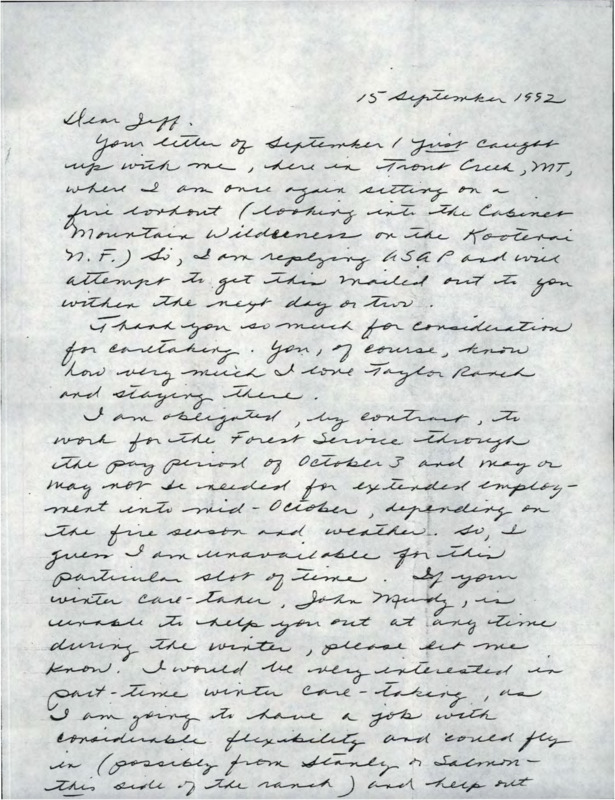 15 September 1992
Dear Jeff.
Your letter of September 1 just caught
up with me, here in Trout Creek, MT,
where I am once again sitting on a
fire lookout (looking into the Cabinet
Mountain Wilderness on the Kootenai
N.F.) So, I am replying ASAP and will
attempt to get this mailed out to you
within the next day or two.
Thank you so much for consideration
for caretaking. You, of course, know
how very much I love Taylor Ranch
and staying there.
I am obligated, by contract, to
work for the Forest Service through
the pay period of October 3 and may or
may not be needed for extended employ-
ment into mid-October, depending on
the fire season and weather. So, I
guess I am unavailable for this
particular slot of time. If your
winter care-taker, John Mundy, is
unable to help you out at any time
during the winter, please let me
know. I would be very interested in
part-time winter care-taking, as
I am going to have a job with
considerable flexibility and could fly
in (possibly from Stanly or Salmon-
this side of the ranch) and help out